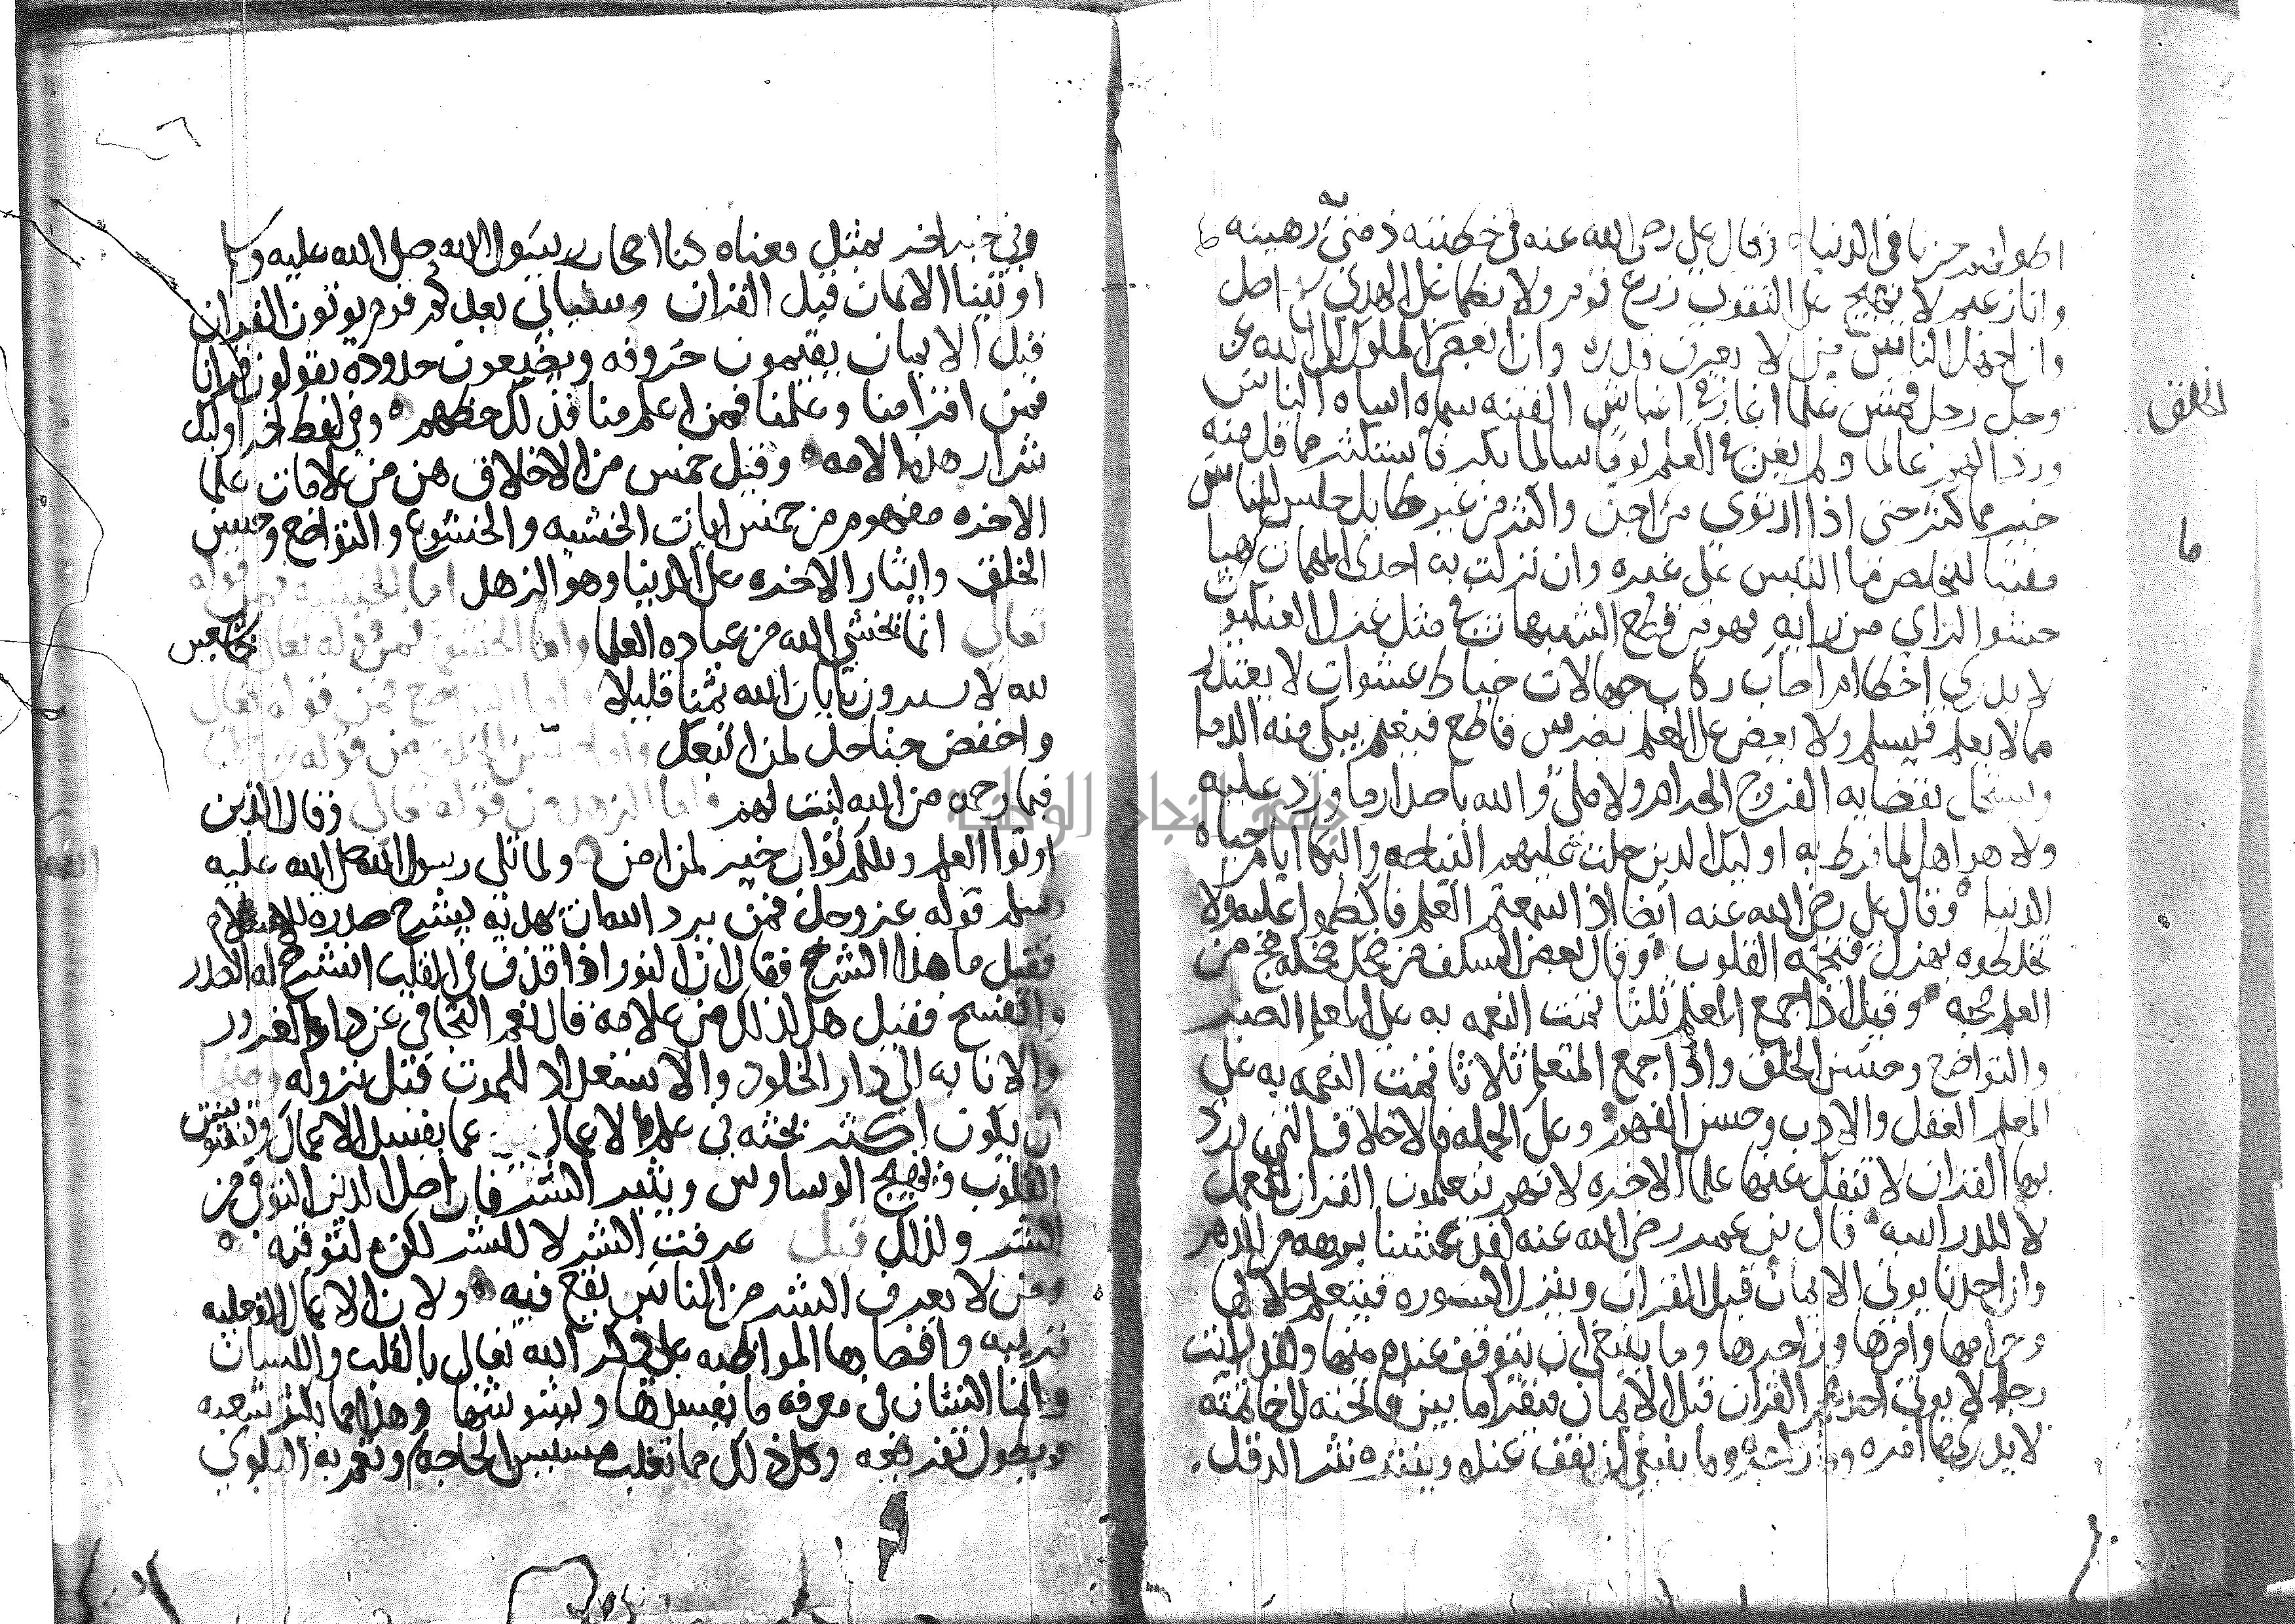 اطولهم حزنا في الدنيا وقال علي رضي الله عنه في خطبته ذمتي رهينه
وانا زعيم لا يهيج على التقوى زرع قوم ولا يظما على الهدى اصل
وان اجهل الناس من لا يعرف قدره وان ابغض الى الله عز
وجل رجل قمش علما اغار في اغباش الفتنه سماه اشباه الناس
ورذالهم عالما ولم يعن في العلم يوما سالما بكر فاستكثر مما قل منه
خير مما كثر حتى اذا ارتوى من اجن واكثر من غير طايل جلس للناس
مفتيا لتخليص ما التبس على غيره وان نزلت به احدى المبهمات هيا
حشو الراي من رايه فهو من قطع الشبهات في مثل غزل العنكبوت
لا يدري اخطا ام اصاب ركاب جهالات خباط عشوات لا يعتذر
مما لا يعلم فيسلم ولا يعض على العلم بضرس قاطع فيغنم يبكي منه الدما
ويستحل بقضايه الفروج الحرام ولا ملي والله باصدار ما ورد عليه
ولا هو اهل لما فرط به اوليك الذين حلت عليهم النياحه والبكا ايام حياه
الدنيا وقال علي رضي الله عنه ايضا اذا سمعتم العلم فاكظموا عليه ولا
تخلطوه بهزل فتمجه القلوب وقال بعض السلف من ضحك ضحكه مج من
العلم مجه وقيل اذا جمع المعلم ثلثا تمت النعمه به على المتعلم الصبر
والتواضع وحسن الخلق واذا جمع المتعلم ثلاثا تمت النعمه به على
المعلم العقل والادب وحسن الفهم وعلى الجمله فالاخلاق التي ورد
بها القران لا تنفك عنها علما الاخره لانهم يتعلمون القران للعمل
لا للدراسه قال بن عمر رضي الله عنه لقد عشنا برهه من الدهر
وان احدنا يوتى الايمان قبل القران وينزل السوره فيتعلم حلالها
وحرامها وامرها وزاجرها وما ينبغي ان يتوقف عنده منها ولقد رايت
رجالا يوتى احدهم القران قبل الايمان فيقرا ما بين فاتحته الى خاتمته
لا يدري ما امره وما زاجره وما ينبغي ان يقف عنده وينثره نثر الدقل
وفي خبر اخر بمثل معناه كنا اصحاب رسول الله صلى الله عليه وسلم
اوتينا الايمان قبل القران وسياتي بعدكم قوم يوتون القران
قبل الايمان يقيمون حروفه ويضيعون حدوده يقولون قرانا
فمن اقرا منا وعلمنا فمن اعلم منا فذلك حظهم وفي لفظ اخر اوليك
شرار هذه الامه وقيل خمس من الاخلاق هن من علامات علما
الاخره مفهوم من خمس ايات الخشيه والخشوع والتواضع وحسن
الخلق وايثار الاخره على الدنيا وهو الزهد اما الخشيه فمن قوله
تعالى انما يخشى الله من عباده العلما واما الخشوع فمن قوله تعالى خاشعين
لله لا يشترون بايات الله ثمنا قليلا واما التواضع فمن قوله تعالى
واخفض جناحك لمن اتبعك واما حسن الخلق فمن قوله
فبما رحمه من الله لنت لهم واما الزهد فمن قوله تعالى وقال الذين
اوتوا العلم ويلكم ثواب خير لمن امن ولما تلى رسول الله صلى الله عليه
وسلم قوله عز وجل فمن يرد الله ان يهديه يشرح صدره للاسلام
فقيل ما هذا الشرح فقال ان النور اذا قذف في القلب انشرح له الصدر
وانفسح فقيل هل لذلك من علامه قال نعم التجافي عن دار الغرور
والانابه الى دار الخلود والاستعداد للموت قبل نزوله ومنها
ان يكون اكثر بحثه في علم الاعمال عما يفسد الاعمال ويشوش
القلوب ويهيج الوساوس ويثير الشر فان اصل الدين التوقي من
الشر ولذلك قيل عرفت الشر لا للشر لكن لتوقيه
ومن لا يعرف الشر من الناس يقع فيه ولان الاعمال الفعليه
قريبه واقصاها المواظبه على ذكر الله تعالى بالقلب واللسان
وانما الشان في معرفه ما يفسدها ويشوشها وهذا مما يكثر شعبه
ويطول تفريعه وكل ذلك مما يغلب مسيس الحاجه وتعم به البلوى